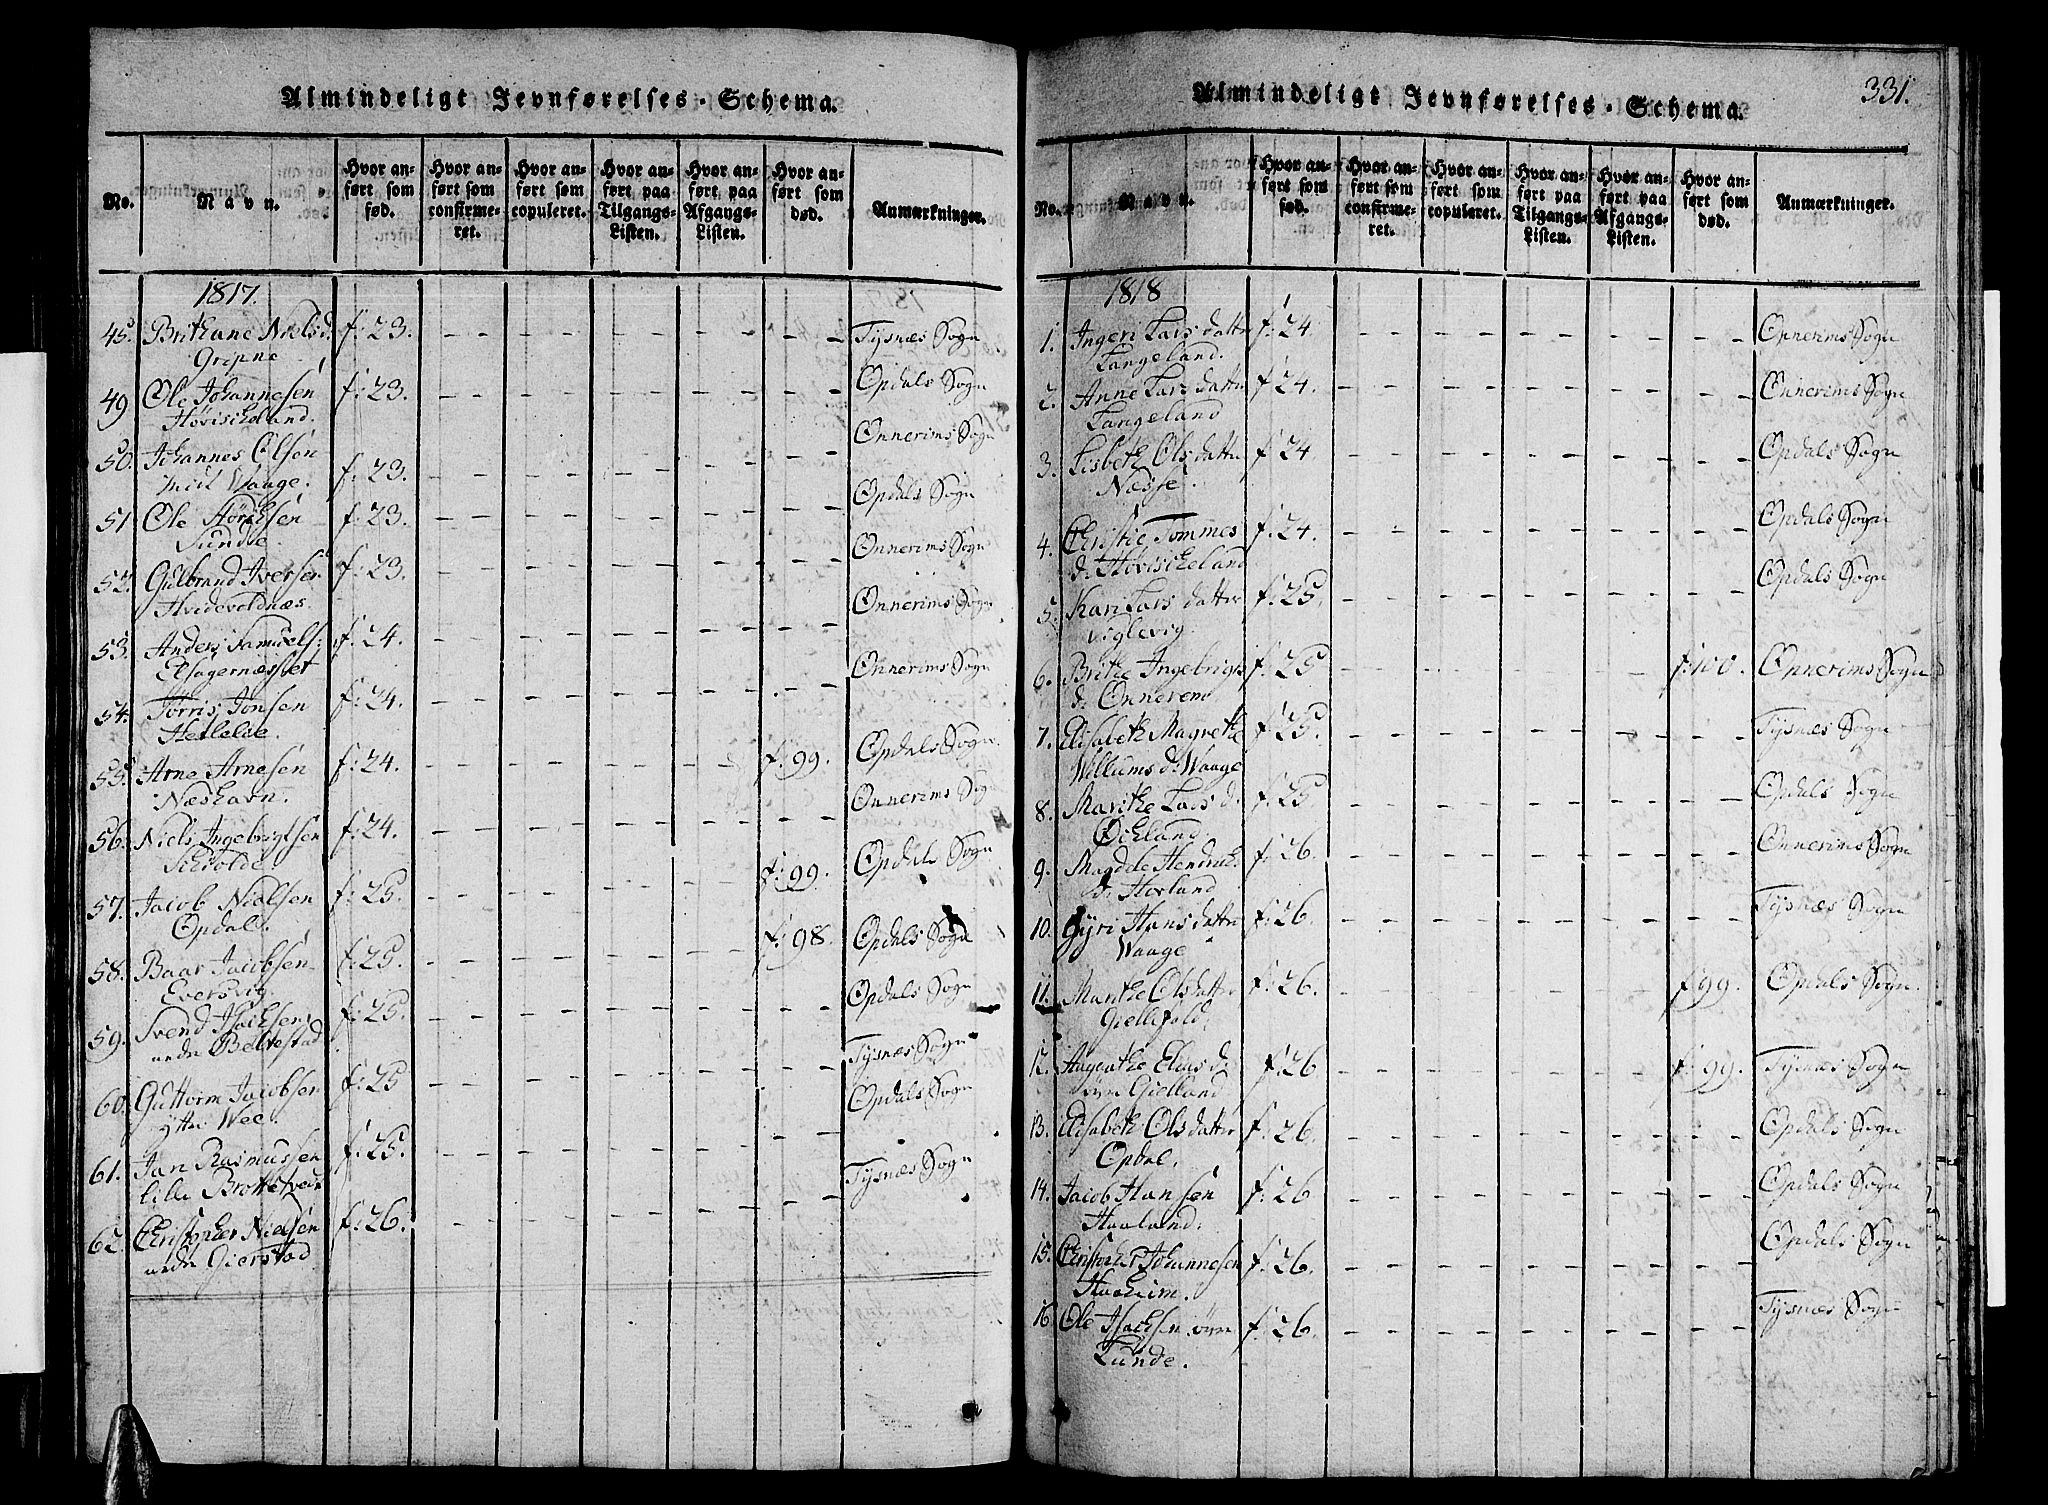 Almindeligt Jevnførelses-Schema.
No.
Navn.
Hvor anført som fød.
Hvor anført som confirmeret.
Hvor anført som copuleret.
Hvor anført paa Tilgangs-Listen.
Hvor anført paa Afgangs-Listen.
Hvor anført som død.
Anmærkninger.
1817.
45. Brithane Nielsd. f: 23. Tysnæs Sogn
Gripne
49 Ole Johannesen f: 23. Opdals Sogn
Høviskeland.
50. Johannes Olsen Onnerims Sogn
Waage. f: 23.
51 Ole f: 23. Opdals Sogn
Sunde
52. Gulbrand Iversen f: 23. Onnerims Sogn
Hvidevoldnæs.
53. Anders Samuels: f. 24. Onnerims Sogn
54. Tørris Jonsen f: 24. Onnerims Sogn
Hetlelie.
55. Arne Arnesen f: 24. f: 99. Opdals Sogn
Næshavn.
56. Niels Ingebrigtsen f: 24. Onnerims Sogn
57. Jacob Nielsen f: 25. f: 99. Opdals Sogn
Opdal.
58. Baar Jacobsen f: 25. f: 98. Opdals Sogn
Eversvig.
59. Svend Isachsen f: 25. Opdals Sogn
nedre Beltestad
60. Guttorm Jacobsen f: 25 Tysnæs Sogn
yttre Wee.
61. Jan Rasmussen f: 25. Opdals Sogn
lille
62. Christopher Nielsen f: 26. Tysnæs Sogn
nedre Gierstad
331.
Almindeligt Jevnførelses-Schema.
No.
Navn.
Hvor anført som fød.
Hvor anført som confirmeret.
Hvor anført som copuleret.
Hvor anført paa Tilgangs-Listen.
Hvor anført paa Afgangs-Listen.
Hvor anført som død.
Anmærkninger.
1818
1. Ingeri Larsdatter f: 24 Onnerims Sogn
Langeland.
2. Anne Larsdatter f: 24. Onnerims Sogn
Langeland
3. Lisbeth Olsdatter f: 24 Opdals Sogn
Næsse.
4. Christie Tommes f: 24. Opdals Sogn
d. Høviskeland
5. Kari Larsdatter f: 25. Opdals Sogn
Viglevig.
6. Brithe Ingebrigts f: 25 f: 100. Onnerims Sogn
d. Onnerem
7. Elisabeth Magrethe f: 25. Tysnæs Sogn
Willums d. Waage
8. Marithe Lars d. f: 25 Opdals Sogn
Økland
9. Magdele Hendrich f: 26. Onnerims Sogn
d. Horland
10. Gyri Hansdatter f: 26. Tysnæs Sogn
Waage
11. Marthe Olsdatter f: 26. f: 99. Opdals Sogn.
12. Aagathe Elias d. f: 26 f: 99. Tysnæs Sogn
øvre Gielland
13. Elisabeth Olsdatter f: 26. Opdals Sogn
Opdal.
14. Jacob Hansen f: 26 Opdals Sogn
Haaland.
15. Christopher Johannesen f: 26. Opdals Sogn
Haaheim.
16. Ole Isachsen øvre f: 26. Tysnæs Sogn
Lunde.